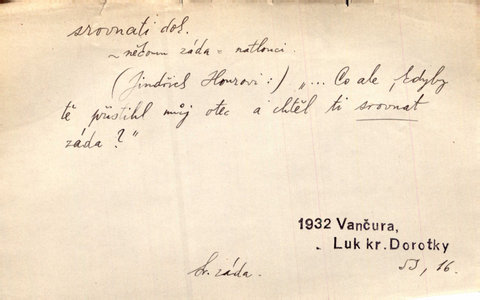 srovnati dok.
~ něčem záda = natlouci.
(Jindřich Honzovi:) „... Co ale, kdyby
tě přistihl můj otec a chtěl ti srovnat
záda?"
1932 Vančura,
Luk kr. Dorotky
53, 16.
záda.